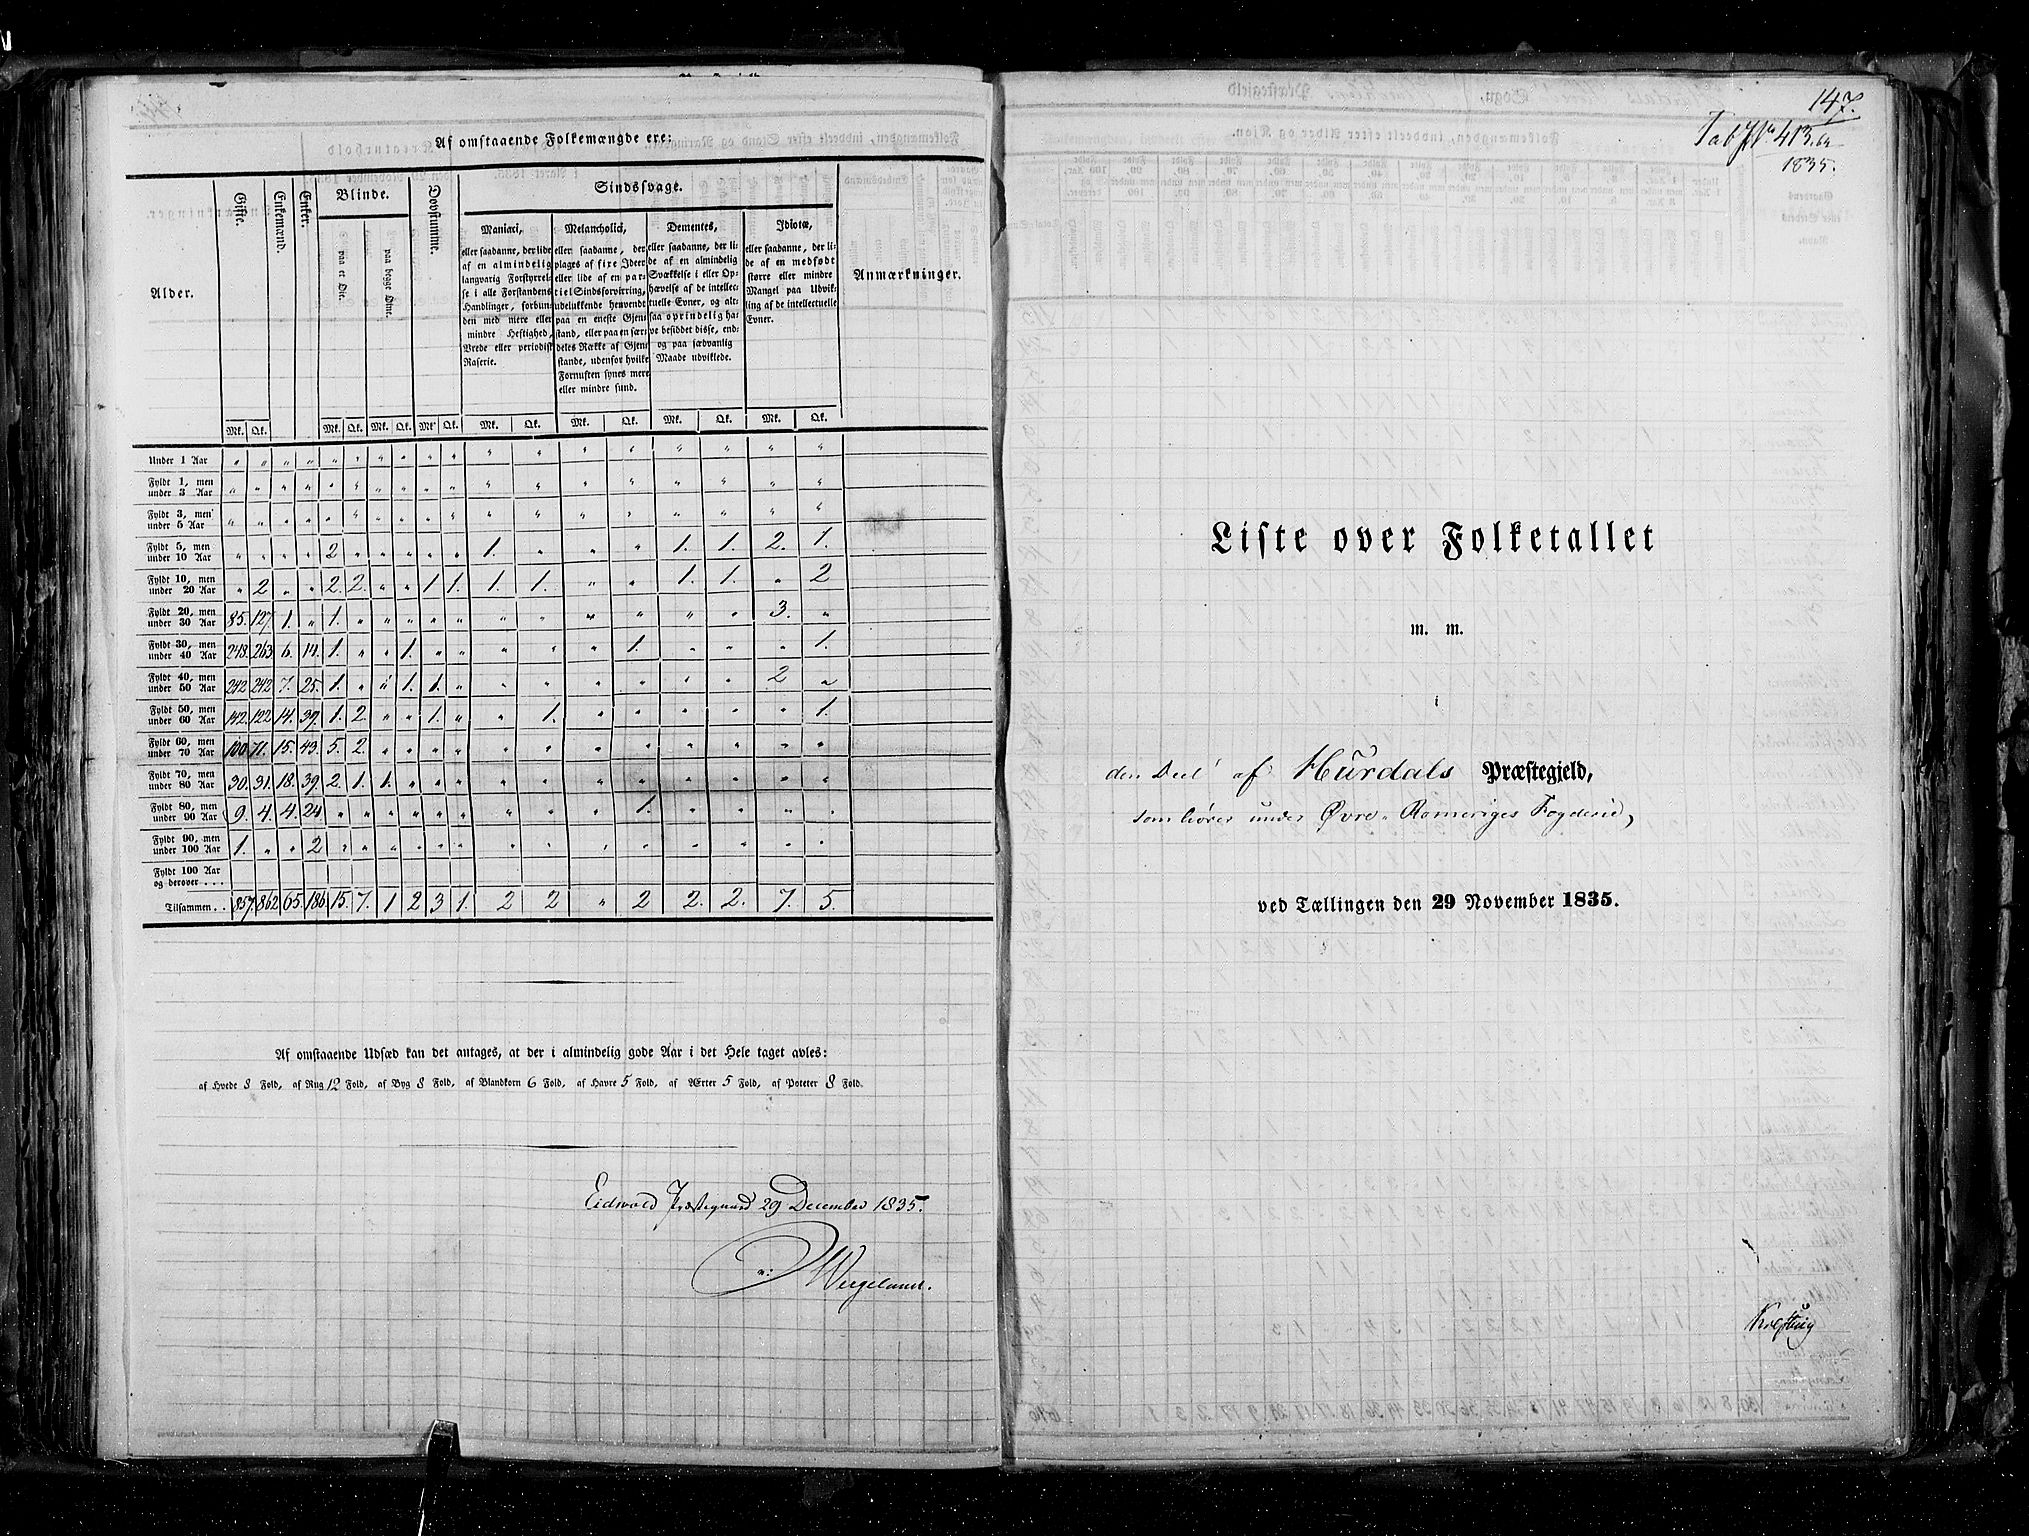 Af omstaaende Folkemængde ere:
Alder.
Gifte.
Enkemænd.
Enker.
Blinde.
paa et Øie.
paa begge Øine.
Døvstumme.
Sindssvage.
Maniaci,
eller saadanne, der lide
af en almindelig
langvarig Forstyrrel-
se i alle Forstandens
Handlinger, forbun-
den med mere eller
mindre Heftighed,
Vrede eller periodisk
Raserie.
Melancholici,
eller saadanne, der
plages af fire Ideer
eller lide af en par-
tiel Sindsforvirring,
udelukkende henvendt
paa en eneste Gjen-
stand, eller paa en sær-
deles Række af Gjen-
stande, udenfor hvilke
Fornuften synes mere
eller mindre sund.
Dementes,
eller saadanne, der li-
de af en almindelig
Svækkelse i eller Op-
hævelse af de intellec-
tuelle Evner, og alt-
saa oprindelig ha-
ve besiddet disse, end-
og paa sædvanlig
Maade udviklede.
Idiotæ,
eller saadanne, der li-
de af en medfødt
større eller mindre
Mangel paa Udvik-
ling af de intellectuelle
Evner.
Anmærkninger.
Mk. Qk. Mk. Qk. Mk. Qk. Mk. Qk. Mk. Qk. Mk. Qk. Mk. Qk. Mk. Qk.
Under 1 Aar " " " " " " " " " " " " " " " " " "
Fyldt 1, men under 3 Aar " " " " " " " " " " " " " " " " " "
Fyldt 3, men under 5 Aar " " " " " " " " " " " " " " " " " "
Fyldt 5, men under 10 Aar " " " " 2 " " " " " 1. " " " 1. 1. 2. 1.
Fyldt 10, men under 20 Aar " 2 " " 2. 2. " " 1 1. 1. 1. " " 1. 1. " 2
Fyldt 20, men under 30 Aar 85. 127. 1. " 1. " " " " " " " " " " " 3. "
Fyldt 30, men under 40 Aar 248. 263. 6. 14. 1. " " 1. " " " " " 1. " " " 1.
Fyldt 40, men under 50 Aar 242 242 7. 25. 1. " " 1. 1. " " " " " " " 2 "
Fyldt 50, men under 60 Aar 142. 122 14. 39. 1. 2. " " 1. " " 1. " " " " " 1.
Fyldt 60, men under 70 Aar 100 71. 15. 43. 5. 2. " " " " " " " " " " " "
Fyldt 70, men under 80 Aar 30. 31. 18. 39. 2. 1. 1. " " " " " " " " " " "
Fyldt 80, men under 90 Aar 9. 4. 4. 24 " " " " " " " " " 1. " " " "
Fyldt 90, men under 100 Aar 1. " " 2 " " " " " " " " " " " " " "
Fyldt 100 Aar og derover . . .
Tilsammen . . 857. 862 65. 186. 15. 7. 1 2 3 1. 2 2 " 2 2. 2. 7. 5.
Af omstaaende Udsæd kan det antages, at der i almindelig gode Aar i det Hele taget avles:
af Hvede 8 Fold, af Rug 12 Fold, af Byg 8 Fold, af Blandkorn 6 Fold, af Havre 5 Fold, af Ærter 5 Fold, af Poteter 8 Fold.
Eidsvold Præstegaard 29 December 1835.
Wergeland.
147.
Tab 413
1835.
Liste over Folketallet
m. m.
i
den Deel af Hurdals Præstegjeld,
som hører under Øvre-Romeriges Fogderie,
ved Tællingen den 29 November 1835.